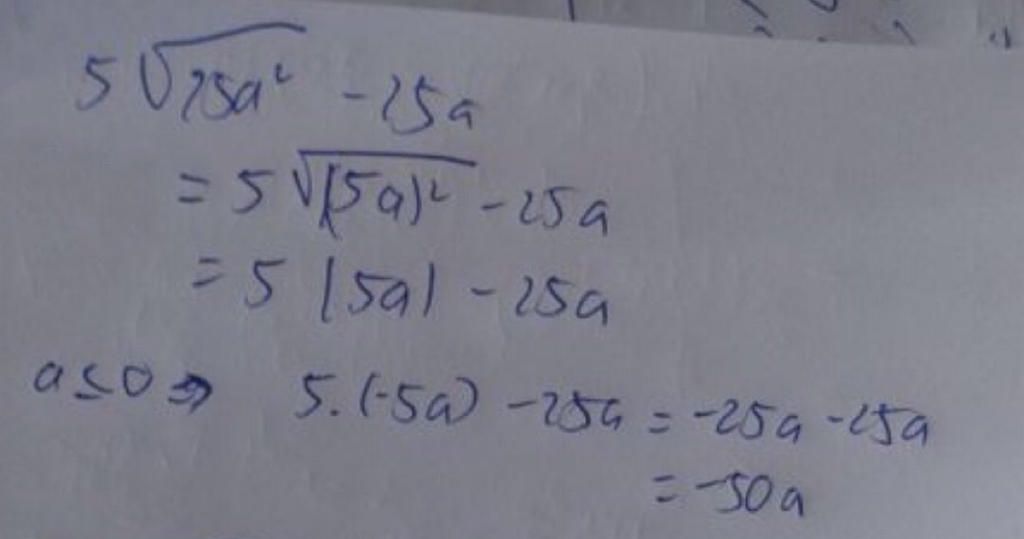 5√25a² - 25a
= 5√(5a)² - 25a
= 5 |5a| - 25a
a ≤ 0 ⇒ 5.(-5a) - 25a = -25a - 25a
= -50a